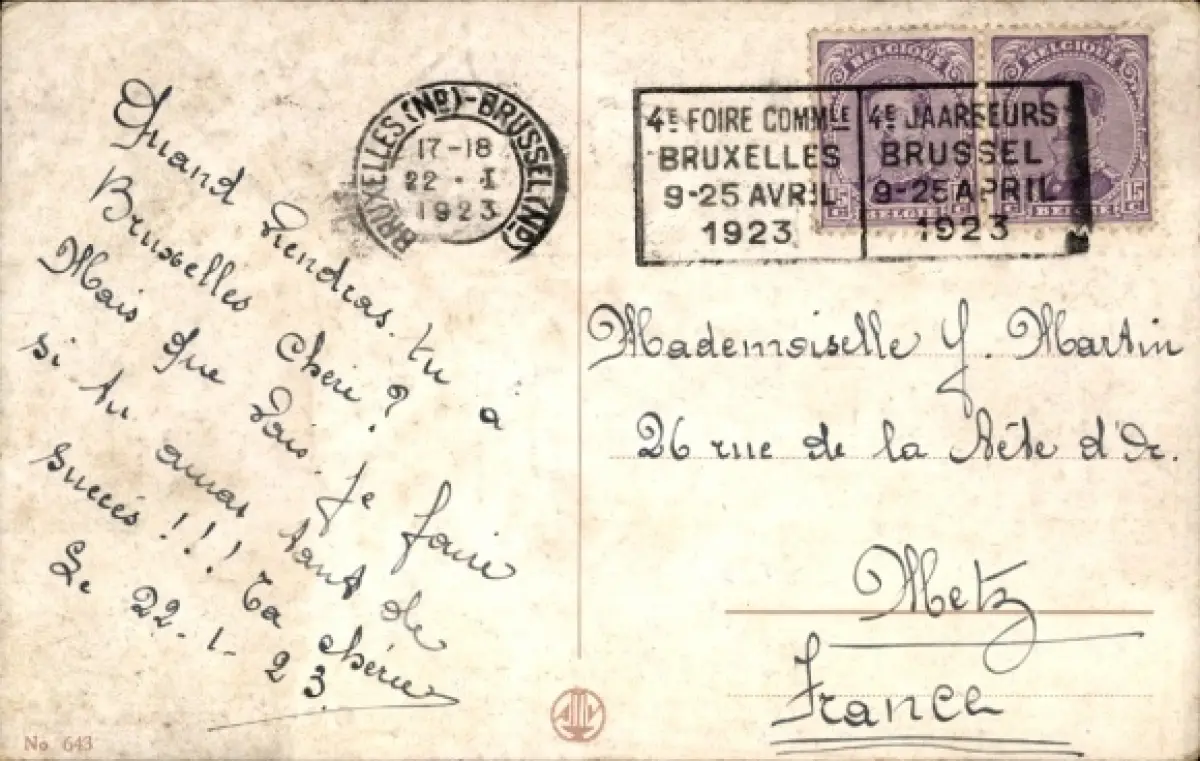 Quand viendras-tu à
Bruxelles chérie?
Mais que vais-je faire
si tu auras tant de
succés!!! Ta chérie
Le 22-1-23
BRUXELLES (ND)-BRUSSEL (ND)
17-18
22-I
1923
4E FOIRE COMMLE
BRUXELLES
9-25 AVRIL
1923
4E JAARBEURS
BRUSSEL
9-25 APRIL
1923
BELGIQUE
15 C BELGIË 15 C
BELGIQUE
15 C BELGIË 15 C
Mademoiselle Y. Martin
26 rue de la Tête d'Or.
Metz
France
No 643